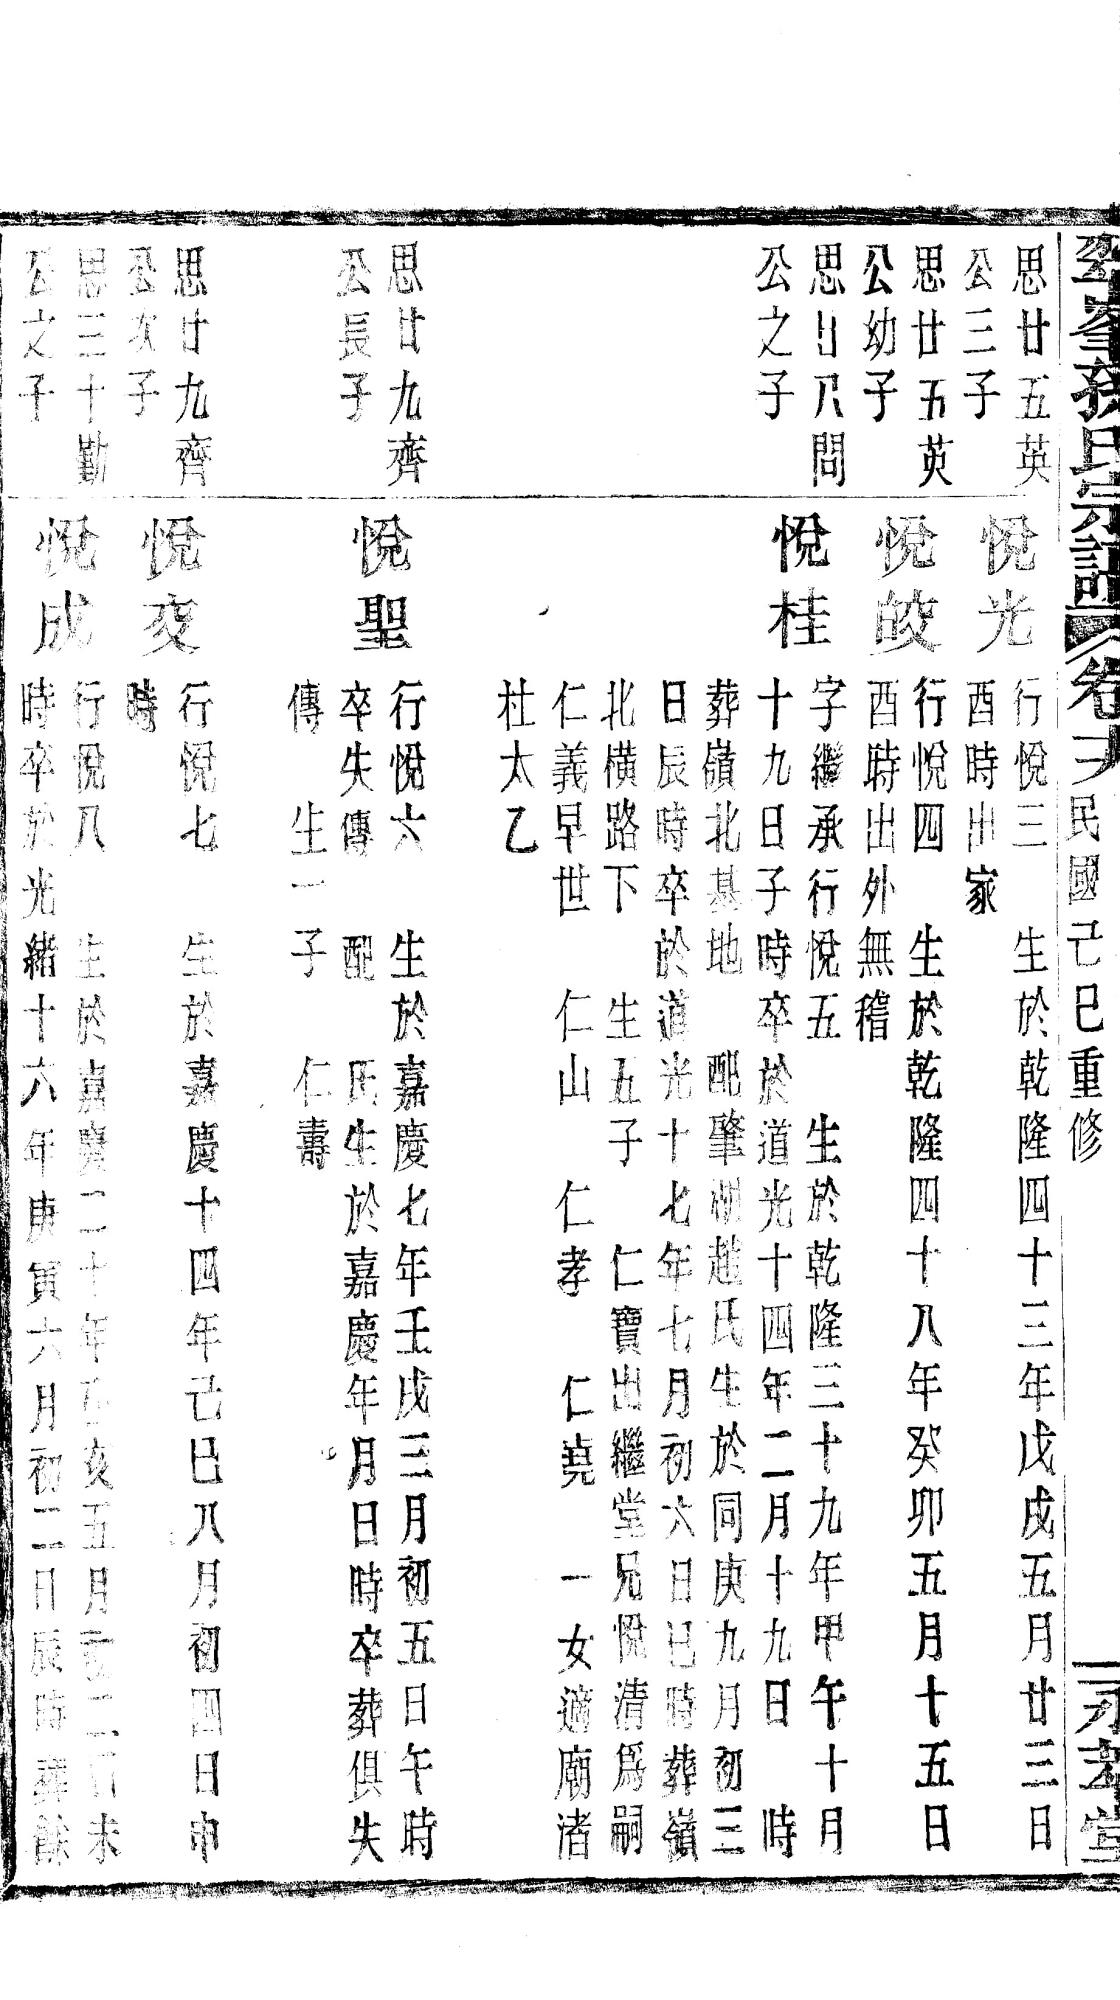 峯孫氏宗譜 卷 民國己巳重修 堂
思廿五英
公三子
思廿五英
公幼子
思廿八問
公之子
思廿九齊
公長子
思廿九齊
公次子
思三十勤
公之子
悅光
行悅三 生於乾隆四十三年戊戌五月廿三日
酉時出家
悅皎
行悅四 生於乾隆四十八年癸卯五月十五日
酉時出外無稽
悅桂
字繼承行悅五 生於乾隆三十九年甲午十月
十九日子時卒於道光十四年二月十九日 時
葬嶺北基地 配肇 趙氏生於同庚九月初三
日辰時卒於道光十七年七月初六日巳時葬嶺
北橫路下 生五子 仁寶出繼堂兄悅清爲嗣
仁義早世 仁山 仁孝 仁堯 一女適廟渚
杜太乙
悅聖
行悅六 生於嘉慶七年壬戌三月初五日午時
卒失傳 配 氏生於嘉慶年月日時卒葬俱失
傳 生一子 仁壽
悅交
行悅七 生於嘉慶十四年己巳八月初四日申
時
悅成
行悅八 生於嘉慶二十年 亥五月初二日未
時卒於光緒十六年庚寅六月初二日辰時葬餘